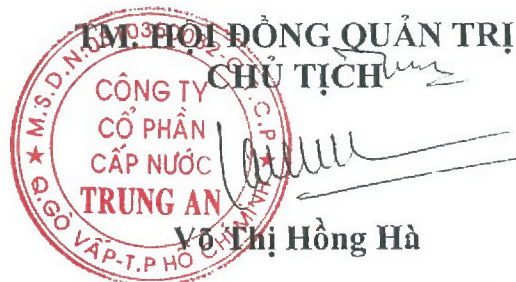 TM. HỘI ĐỒNG QUẢN TRỊ
CHỦ TỊCH
CÔNG TY
CỔ PHẦN
CẤP NƯỚC
TRUNG AN
M.S.D.N:
C.P
★ Q.GÒ VẤP-T.P HỒ CHÍ MINH ★
Võ Thị Hồng Hà